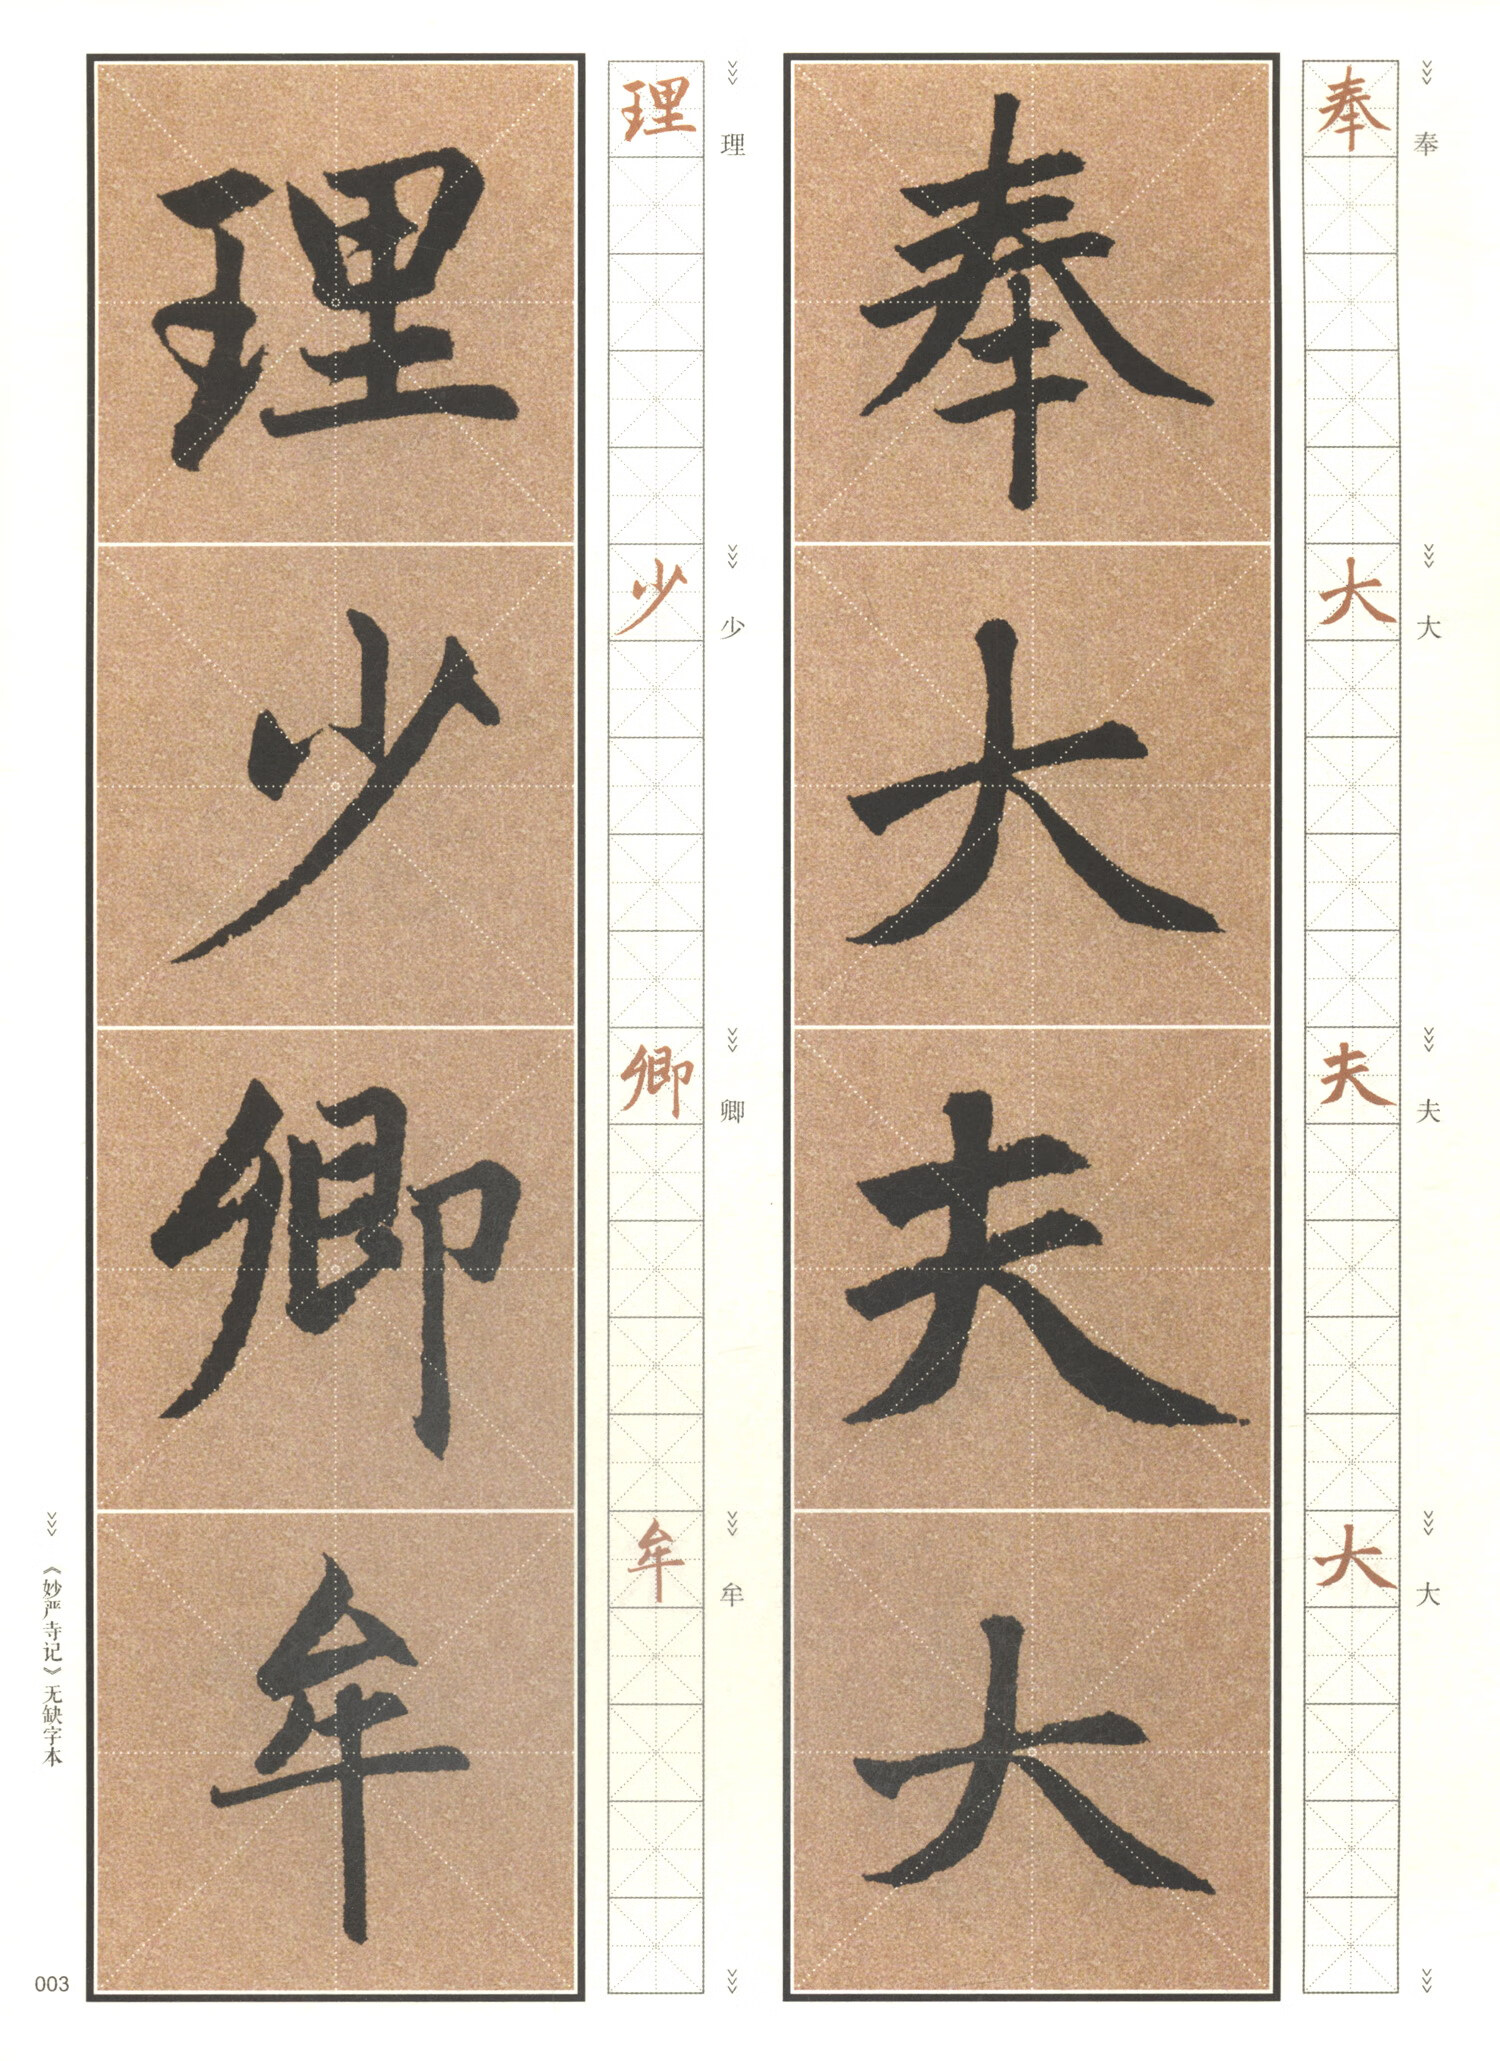 奉大夫大
奉
大
夫
大
奉
大
夫
大
理少卿牟
理
少
卿
牟
理
少
卿
牟
《妙严寺记》无缺字本
003